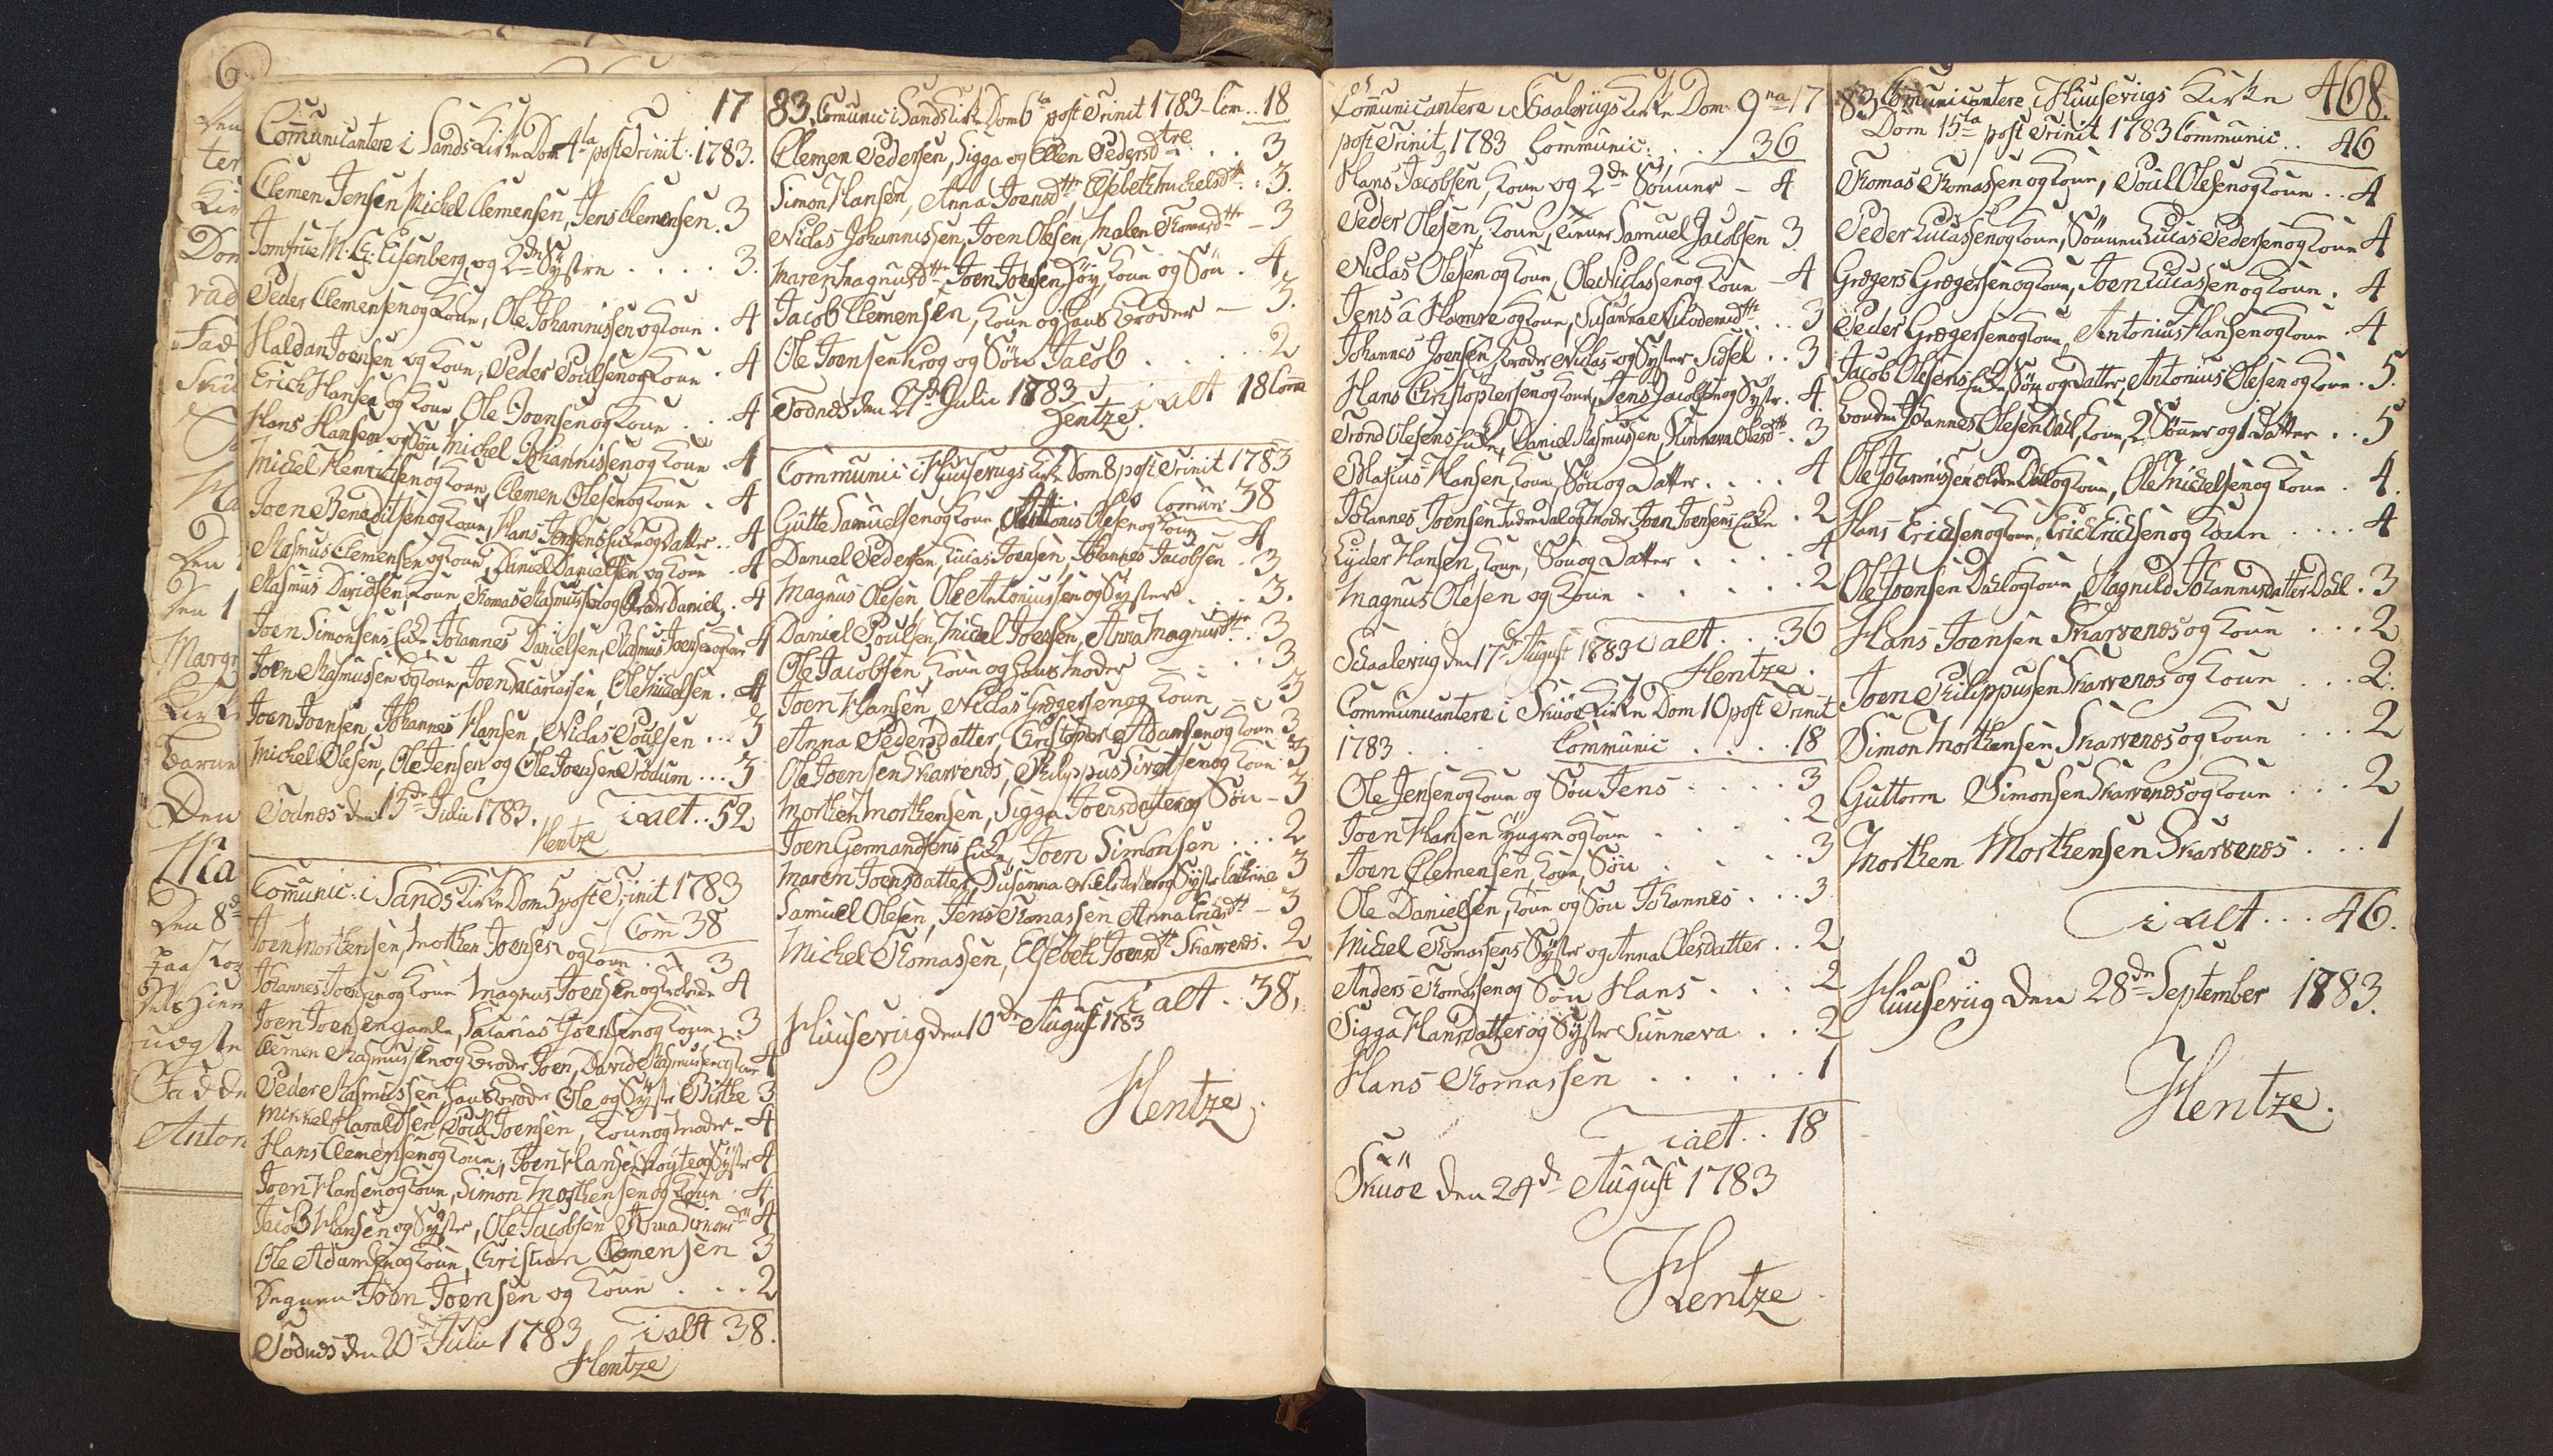 17
Communicantere i Sands Kirke Dom 4ta post Trinit: 1783.
Clemen Jensen, Michel Clemensen, Jens Clemensen. 3
Jomfrue M. E: Eisenberg, og 2de Systre .... 3.
Peder Clemensen og Kone, Ole Johannissen og Kone . 4
Haldan Joensen og Kone, Peder Poulsen og Kone . 4
Erich Hansen og Kone Ole Joensen og Kone .. 4
Hans Hansen og Søn, Michel Johannissen og Kone . 4
Michel Henrichsen og Kone, Clemen Olesen og Kone . 4
Joen Benedictsen og Kone, Hans Jensens Encke og Datter .. 4
Rasmus Clemensen og Kone, Daniel Danielsen og Kone . 4
Rasmus Davidsen, Kone Thomas Rasmussen og Broder Daniel . 4
Joen Simonsens Encke, Johannes Danielsen, Rasmus Joensen og Kone 4
Joen Rasmussen og Kone, Joen Sacariasen, Ole Michelsen . 4
Joen Joensen, Johannes Hansen, Niclas Poulsen ... 3
Michel Olesen, Ole Jensen og Ole Joensen Trødum ... 3
Todnes den 13de Julii 1783. i alt .. 52
Hentze
Communic: i Sands Kirke Dom 5 post Trinit 1783
Com 38
Joen Morthensen, Morthen Joensen og Kone . 3
Johannes Joensen og Kone Magnus Joensen og Kone 4
Joen Joensen gamle, Sacarias Joensen og Kone . 3
Clemen Rasmussen og Broder Joen, David Rasmussen og Kone 4
Peder Rasmussen, hans Broder Ole og Syster Birthe 3
Michel Haraldsen, Poul Joensen, Kone og Moder - 4
Hans Clemensen og Kone, Joen Hansen og Syster 4
Joen Hansen og Kone, Simon Morthensen og Kone . 4
Jacob Hansen og Syster, Ole Jacobsen Anna Simonsdtr 4
Ole Adamsen og Kone, Christian Clemensen 3
Degnen Joen Joensen og Kone ... 2
Todnes den 20de Julii 1783 i alt 38.
Hentze
83. Communic i Sands Kirke Dom 6ta post Trinit 1783 - Com .. 18
Clemen Pedersen, Sigga og Ellen Pedersdtre ... 3
Simon Hansen, Anna Joensdtr, Elsebeth Michelsdtr . 3.
Niclas Johannissen, Joen Olesen, Malen Thomasdtr - 3
Maren Magnusdtr, Joen Joensen Søy, Kone og Søn . 4
Jacob Clemensen, Kone og hans Broder - 3.
Ole Joensen Krog og Søn Jacob ..... 2
Todnes den 27de Julii 1783 i alt 18 Com
Hentze.
Communic i Huusevigs Kirke Dom 8 post Trinit 1783
Comun: 38
Gutte Samuelsen og Kone, Anttonis Olesen og Kone 4
Daniel Pedersen, Lucas Joensen, Johannes Jacobsen . 3
Magnus Olesen, Ole Antoniussen og Syster .. 3.
Daniel Poulsen, Michel Joensen, Anna Magnusdtr . 3
Ole Jacobsen, Kone og hans Moder ... 3
Joen Hansen, Niclas Grægersen og Kone - 3
Anna Pedersdatter, Christopher Adamsen og Kone 3
Ole Joensen Skarvenes, Philippus Sivertsen og Kone 3
Morthen Morthensen, Sigga Joensdatter og Søn - 3
Joen Germandsens Encke, Joen Simonsen ... 2
Maren Joensdatter, Susanna Nielsdatter og Syster Cathrine 3
Samuel Olesen, Jens Thomassen Anna Erichsdtr - 3
Michel Thomassen, Elsebeth Joensdtr Skarvenes . 2
i alt .. 38.
Huusevig den 10de August 1783
Hentze.
Communicantere i Skaalevigs Kirke Dom: 9na 17
post Trinit 1783 Communic: ... 36
Hans Jacobsen, Kone og 2de Sønner - 4
Peder Olesen, Kone, tiener Samuel Jacobsen 3
Niclas Olesen og Kone, Ole Niclasen og Kone - 4
Jens a Hamre og Kone, Susanna Nicodemsdtr ... 3
Johannes Joensen, Broder Niclas og Syster Sidsel .. 3
Hans Christophersen og Kone, Jens Jacobsen og Syster . 4
Trond Olesens Encke, Daniel Rasmussen, Sunneva Olesdtr . 3
Blasius Hansen, Kone, Søn og Datter .... 4
Johannes Joensen Inderdal og Moder, Joen Joensens Encke . 2
Lyder Hansen, Kone, Søn og Datter .... 4
Magnus Olesen og Kone ..... 2
i alt ... 36
Skaalevig den 17de August 1783
Hentze.
Communicantere i Skuøe Kirke Dom 10 post Trinit
1783 ... Communic .... 18
Ole Jensen og Kone og Søn Jens .... 3
Joen Hansen Yngre og Kone .... 2
Joen Clemensen, Kone, Søn .... 3
Ole Danielsen, Kone og Søn Johannes ... 3
Michel Thomassens Syster og Anna Olesdatter .. 2
Anders Thomassen og Søn Hans .... 2
Sigga Hansdatter og Syster Sunneva ... 2
Hans Thomassen ...... 1
i alt .. 18
Skuöe den 24de August 1783
Hentze
83 Communicantere i Huusevigs Kirke 468.
Dom 15ta post Trinit 1783 Communic .. 46
Thomas Thomassen og Kone, Poul Olesen og Kone .. 4
Peder Lucassen og Kone, Sønnen Lucas Pedersen og Kone 4
Grægers Grægersen og Kone, Joen Lucassen og Kone . 4
Peder Grægersen og Kone, Antonius Hansen og Kone . 4
Jacob Olesens Encke, Søn og Datter, Antonius Olesen og Kone . 5.
Bonden Johannes Olesen Dahl, Kone, 2 Sønner og 1 Datter .. 5
Ole Johannissen Dahl og Kone, Ole Michelsen og Kone . 4.
Hans Erichsen og Kone, Erich Erichsen og Kone ... 4
Ole Joensen Dahl og Kone, Ragnild Johannisdatter Dahl . 3
Hans Joensen Skarvenes og Kone ... 2
Joen Philippussen Skarvenes og Kone ... 2.
Simon Morthensen Skarvenes og Kone ... 2
Guttorm Simonsen Skarvenes og Kone ... 2
Morthen Morthensen Skarvenes ... 1
i alt ... 46.
Huusevig den 28de September 1783.
Hentze.